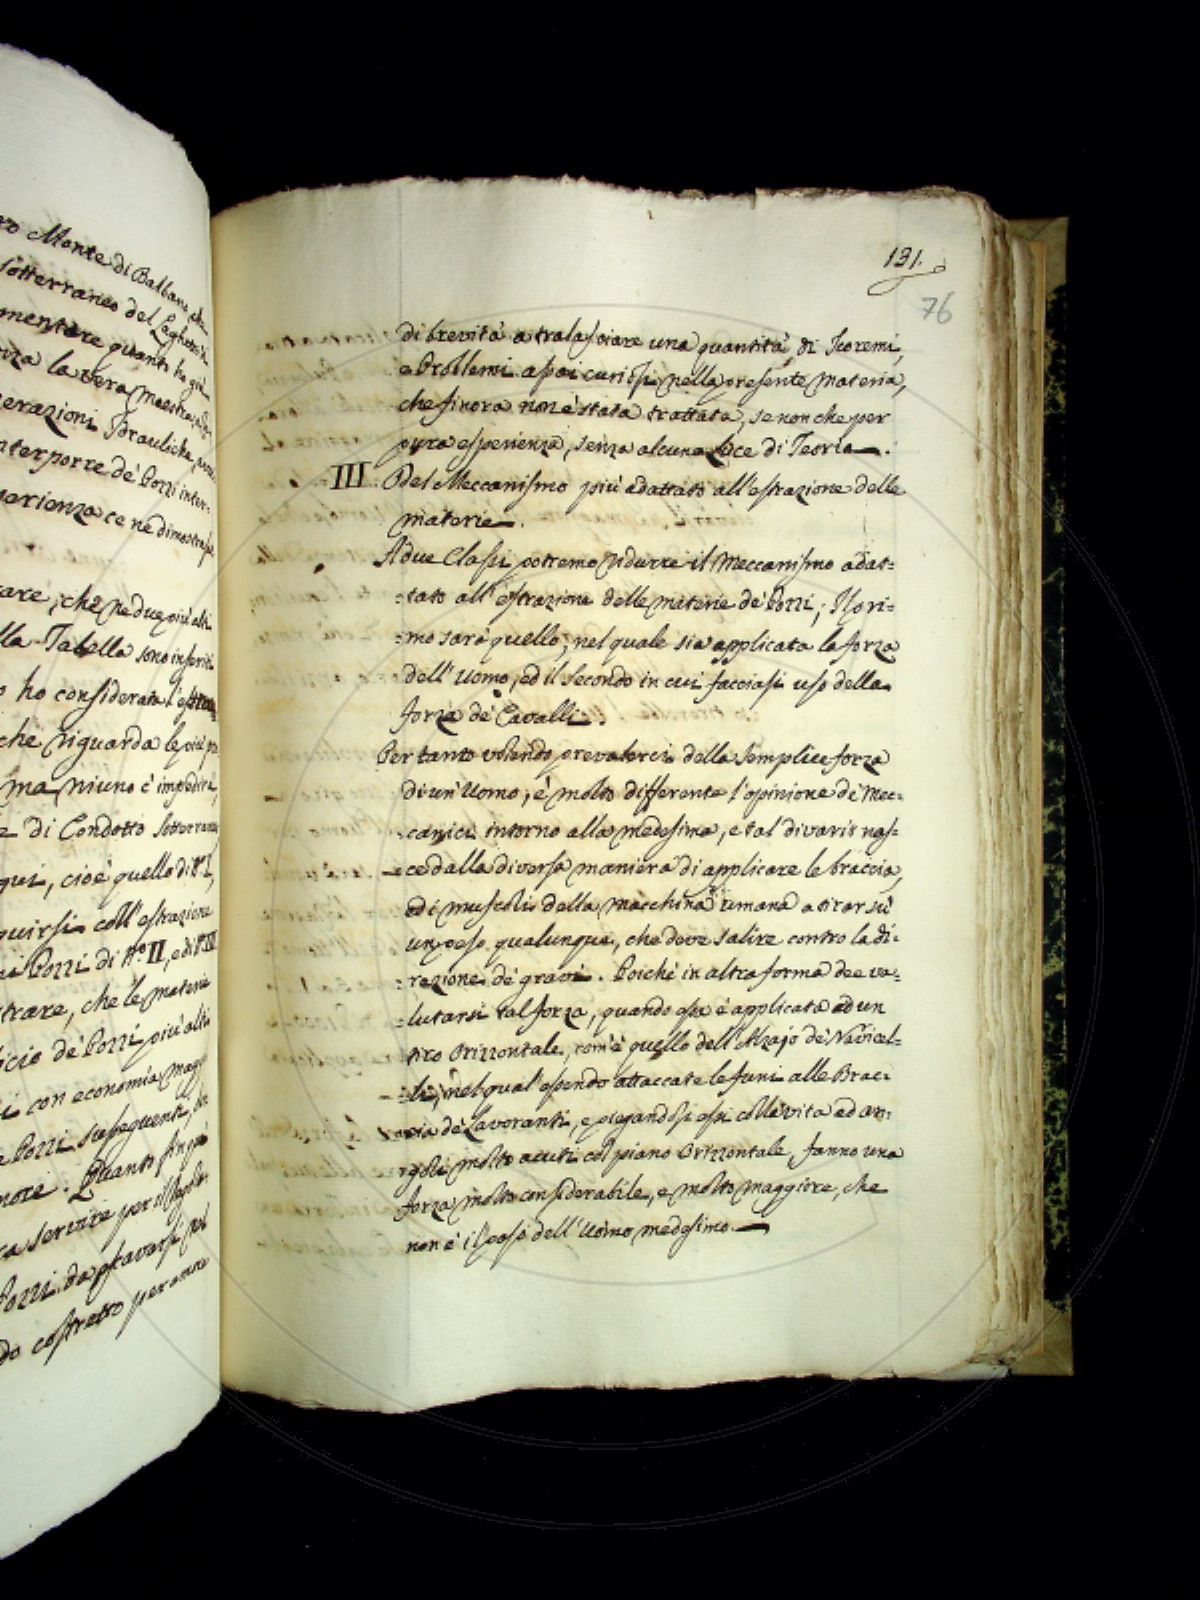 ro Monte di Balbano, che
sotterraneo del Laghetto di
mentare quanto ho già
nza la vera maestra, ado
erazioni Idrauliche,
terporre de' Pozzi inter-
perienza ce ne dimostrasse
are, che ne due più alti
lla Tabella sono inseriti
o ho considerato l'
che riguarda le più
ma niuno è impedire,
e di Condotto Sotterraneo
qui, cioè quello di N.º I,
guirsi coll'estrazione
ai Pozzi di N.º II, ed N.º III
trare, che le materie
icio de' Pozzi più alti
i con economia mag
e Pozzi susseguenti,
nore. Quanto finquì
ra servire per il
Pozzi da scavarsi nel
do costretto per amore
131.
76
di brevità a tralasciare una quantità di Teoremi,
e Problemi assai curiosi nella presente materia,
che finora non è stata trattata, se non che per
pura esperienza, senza alcuna luce di Teoria.
III. Del Meccanismo più adattato all'estrazione delle
materie.
A due Classi potremo ridurre il Meccanismo adat=
=tato all'estrazione delle materie de' Pozzi; Il pri=
=mo sarà quello, nel quale sia applicata la forza
dell'Uomo, ed il Secondo in cui facciasi uso della
forza de' Cavalli.
Per tanto volendo prevalerci della semplice forza
di un'Uomo, è molto differente l'opinione de' Mec=
=canici intorno alla medesima, e tal divario nas=
=ce dalla diversa maniera di applicare le braccia,
ed i muscoli della macchina umana a tirar sù
un peso qualunque, che deve salire contro la di=
=rezione de' gravi. Poichè in altra forma dee va=
=lutarsi tal forza, quando essa è applicata ad un
tiro Orizzontale, com'è quello dell'Alzajo de' Navicel=
=li, nel qual'essendo attaccate le funi alle Brac=
=cia de' Lavoranti, e piegandosi essi colle vita ad an=
=goli molto acuti col piano Orizzontale, fanno una
forza molto considerabile, e molto maggiore, che
non è il peso dell'Uomo medesimo.